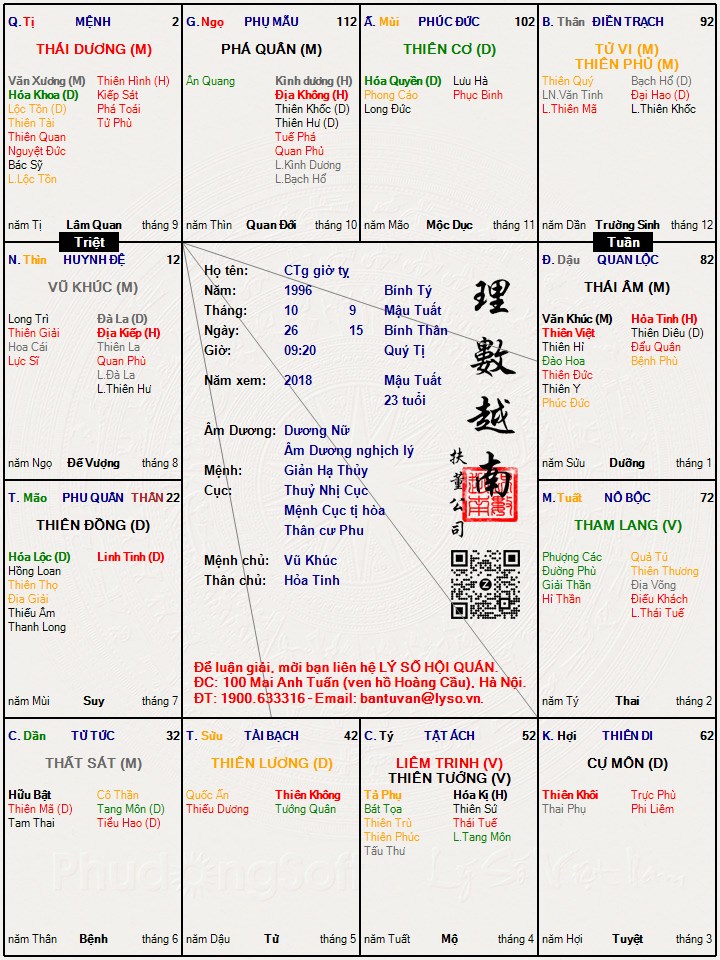 Q. Tị MỆNH 2
THÁI DƯƠNG (M)
Văn Xương (M) Thiên Hình (H)
Hóa Khoa (D) Kiếp Sát
Lộc Tồn (D) Phá Toái
Thiên Tài Tử Phù
Thiên Quan
Nguyệt Đức
Bác Sỹ
L.Lộc Tồn
năm Tị Lâm Quan tháng 9
G. Ngọ PHỤ MẪU 112
PHÁ QUÂN (M)
Ân Quang Kình dương (H)
Địa Không (H)
Thiên Khốc (D)
Thiên Hư (D)
Tuế Phá
Quan Phủ
L.Kình Dương
L.Bạch Hổ
năm Thìn Quan Đới tháng 10
Ấ. Mùi PHÚC ĐỨC 102
THIÊN CƠ (D)
Hóa Quyền (D) Lưu Hà
Phong Cáo Phục Binh
Long Đức
năm Mão Mộc Dục tháng 11
B. Thân ĐIỀN TRẠCH 92
TỬ VI (M)
THIÊN PHỦ (M)
Thiên Quý Bạch Hổ (D)
LN.Văn Tinh Đại Hao (D)
L.Thiên Mã L.Thiên Khốc
năm Dần Trường Sinh tháng 12
Triệt
Tuần
N. Thìn HUYNH ĐỆ 12
VŨ KHÚC (M)
Long Trì Đà La (D)
Thiên Giải Địa Kiếp (H)
Hoa Cái Thiên La
Lực Sĩ Quan Phù
L.Đà La
L.Thiên Hư
năm Ngọ Đế Vượng tháng 8
Họ tên: CTg giờ tỵ
Năm: 1996 Bính Tý
Tháng: 10 9 Mậu Tuất
Ngày: 26 15 Bính Thân
Giờ: 09:20 Quý Tị
Năm xem: 2018 Mậu Tuất
23 tuổi
Âm Dương: Dương Nữ
Âm Dương nghịch lý
Mệnh: Giản Hạ Thủy
Cục: Thuỷ Nhị Cục
Mệnh Cục tị hòa
Thân cư Phu
Mệnh chủ: Vũ Khúc
Thân chủ: Hỏa Tinh
理數越南
扶董公司
Để luận giải, mời bạn liên hệ LÝ SỐ HỘI QUÁN.
ĐC: 100 Mai Anh Tuấn (ven hồ Hoàng Cầu), Hà Nội.
ĐT: 1900.633316 - Email: bantuvan@lyso.vn.
Đ. Dậu QUAN LỘC 82
THÁI ÂM (M)
Văn Khúc (M) Hỏa Tinh (H)
Thiên Việt Thiên Diêu (D)
Thiên Hỉ Đẩu Quân
Đào Hoa Bệnh Phù
Thiên Đức
Thiên Y
Phúc Đức
năm Sửu Dưỡng tháng 1
T. Mão PHU QUÂN THÂN 22
THIÊN ĐỒNG (D)
Hóa Lộc (D) Linh Tinh (D)
Hồng Loan
Thiên Thọ
Địa Giải
Thiếu Âm
Thanh Long
năm Mùi Suy tháng 7
M. Tuất NÔ BỘC 72
THAM LANG (V)
Phượng Các Quả Tú
Đường Phù Thiên Thương
Giải Thần Địa Võng
Hỉ Thần Điếu Khách
L.Thái Tuế
năm Tý Thai tháng 2
C. Dần TỬ TỨC 32
THẤT SÁT (M)
Hữu Bật Cô Thần
Thiên Mã (D) Tang Môn (D)
Tam Thai Tiểu Hao (D)
năm Thân Bệnh tháng 6
T. Sửu TÀI BẠCH 42
THIÊN LƯƠNG (D)
Quốc Ấn Thiên Không
Thiếu Dương Tướng Quân
năm Dậu Tử tháng 5
C. Tý TẬT ÁCH 52
LIÊM TRINH (V)
THIÊN TƯỚNG (V)
Tả Phụ Hóa Kị (H)
Bát Tọa Thiên Sứ
Thiên Trù Thái Tuế
Thiên Phúc L.Tang Môn
Tấu Thư
năm Tuất Mộ tháng 4
K. Hợi THIÊN DI 62
CỰ MÔN (D)
Thiên Khôi Trực Phù
Thai Phụ Phi Liêm
năm Hợi Tuyệt tháng 3
PhudongSoft
Lý Số Việt Nam